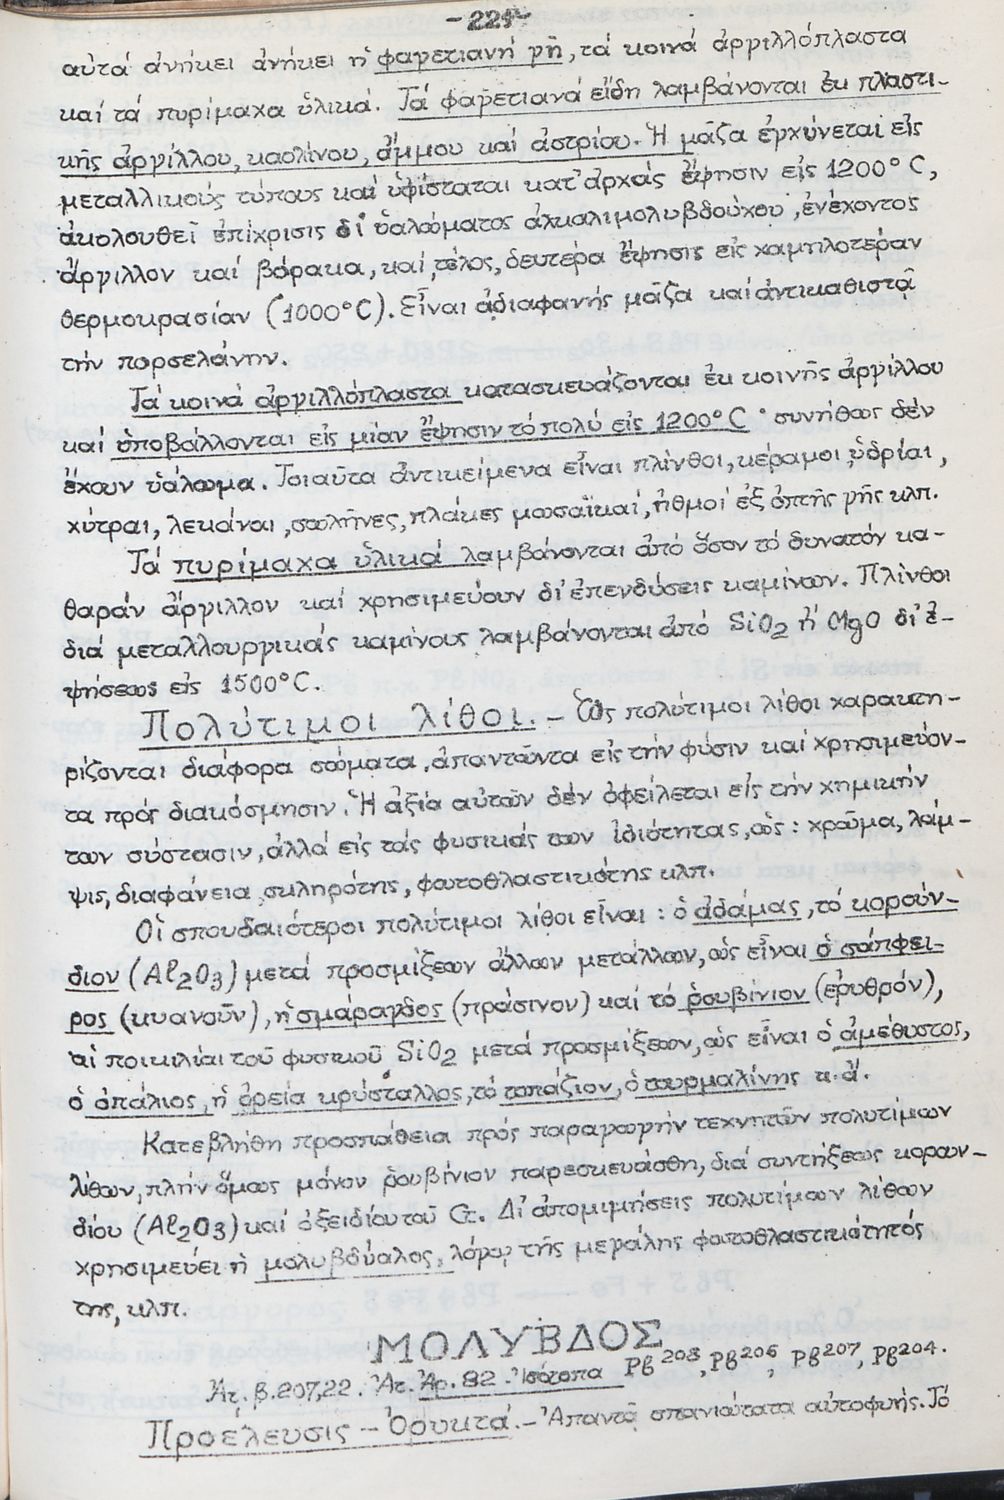 -221-
αὐτά ἀνήκει ἀνήκει ἡ φαγετιανή γῆ, τά κοινά ἀργιλλόπλαστα
καί τά πυρίμαχα ὑλικά. Τά φαγετιανά εἴδη λαμβάνονται ἐκ πλαστι-
κῆς ἀργίλλου, καολίνου, ἄμμου καί ἀστρίου. Ἡ μᾶζα ἐγχύνεται εἰς
μεταλλικούς τύπους καί ὑφίσταται κατ' ἀρχάς ἔψησιν εἰς 1200° C,
ἀκολουθεῖ ἐπίχρισις δι' ὑαλώματος ἀλκαλιμολυβδούχου, ἐνέχοντος
ἄργιλλον καί βόρακα, καί, τέλος, δευτέρα ἔψησις εἰς χαμηλοτέραν
θερμοκρασίαν (1000°C). Εἶναι ἀδιαφανής μᾶζα καί ἀντικαθιστᾷ
τήν πορσελάνην.
Τά κοινά ἀργιλλόπλαστα κατασκευάζονται ἐκ κοινῆς ἀργίλλου
καί ὑποβάλλονται εἰς μίαν ἔψησιν τό πολύ εἰς 1200° C · συνήθως δέν
ἔχουν ὑάλωμα. Τοιαῦτα ἀντικείμενα εἶναι πλίνθοι, κέραμοι, ὑδρίαι,
χύτραι, λεκάναι, σωλῆνες, πλάκες μωσαϊκαί, ἠθμοί ἐξ ὀπτῆς γῆς κλπ.
Τά πυρίμαχα ὑλικά λαμβάνονται ἀπό ὅσον τό δυνατόν κα-
θαράν ἄργιλλον καί χρησιμεύουν δι' ἐπενδύσεις καμίνων. Πλίνθοι
διά μεταλλουργικάς καμίνους λαμβάνονται ἀπό SiO2 ἤ MgO δι' ἐ-
ψήσεως εἰς 1500°C.
Πολύτιμοι λίθοι. - Ὡς πολύτιμοι λίθοι χαρακτη-
ρίζονται διάφορα σώματα, ἀπαντῶντα εἰς τήν φύσιν καί χρησιμεύον-
τα πρός διακόσμησιν. Ἡ ἀξία αὐτῶν δέν ὀφείλεται εἰς τήν χημικήν
των σύστασιν, ἀλλά εἰς τάς φυσικάς των ἰδιότητας, ὡς: χρῶμα, λάμ-
ψις, διαφάνεια, σκληρότης, φωτοθλαστικότης κλπ.
Οἱ σπουδαιότεροι πολύτιμοι λίθοι εἶναι: ὁ ἀδάμας, τό κορούν-
διον (Al2O3) μετά προσμίξεων ἄλλων μετάλλων, ὡς εἶναι ὁ σάπφει-
ρος (κυανοῦν), ἡ σμάραγδος (πράσινον) καί τό ῥουβίνιον (ἐρυθρόν),
αἱ ποικιλίαι τοῦ φυσικοῦ SiO2 μετά προσμίξεων, ὡς εἶναι ὁ ἀμέθυστος,
ὁ ὀπάλιος, ἡ ὀρεία κρύσταλλος, τό τοπάζιον, ὁ τουρμαλίνης κ.ἄ.
Κατεβλήθη προσπάθεια πρός παραγωγήν τεχνητῶν πολυτίμων
λίθων, πλήν ὅμως μόνον ῥουβίνιον παρεσκευάσθη, διά συντήξεως κορουν-
δίου (Al2O3) καί ὀξειδίου τοῦ Cr. Δι' ἀπομιμήσεις πολυτίμων λίθων
χρησιμεύει ἡ μολυβδύαλος, λόγῳ τῆς μεγάλης φωτοθλαστικότητός
της, κλπ.
ΜΟΛΥΒΔΟΣ
Ἀτ. β. 207,22. Ἀτ. Ἀρ. 82. Ἰσότοπα Pb208, Pb206, Pb207, Pb204.
Προέλευσις - Ὀρυκτά. - Ἀπαντᾷ σπανιώτατα αὐτοφυής. Τό